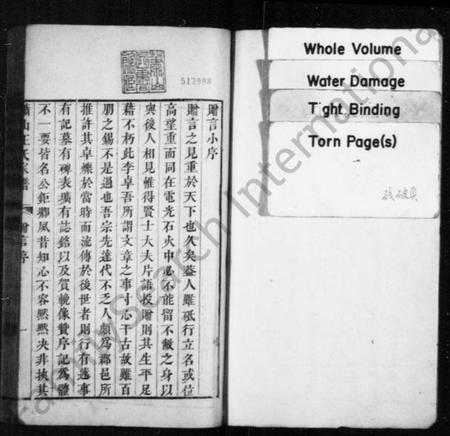 512998
贈言小序
贈言之見重於天下也久矣蓋人雖砥行立名或位
高望重而同在電光石火中必不能留不敝之身以
與後人相見惟得賢士大夫片語投贈則其生平足
藉不朽此李卓吾所謂文章之事寸心千古故雖百
朋之錫不是過也吾宗先達代不乏人頗為郡邑所
推許其卓爍於當時而流傳於後世者則行有述事
有記墓有碑表壙有誌銘以及賀輓像贊序記為體
不一要皆名公鉅卿風昔知心不容默默夫非挾其
蕭山汪氏家譜 贈言序
Whole Volume
Water Damage
Tight Binding
Torn Page(s)
FamilySearch International